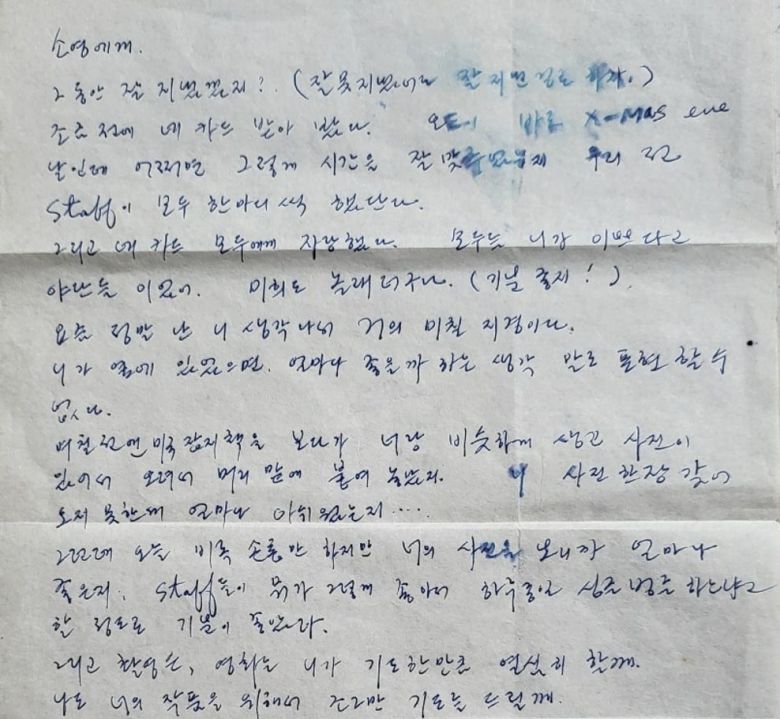 소영에게.
그동안 잘 지냈겠지? (잘못지냈어도 잘 지낸걸로 하자.)
조금 전에 네 카드 받아 봤다. 오늘이 바로 X-Mas eve
날인데 어쩌면 그렇게 시간을 잘 맞추었는지 우리 전
Staff이 모두 한마디씩 했단다.
그리고 네 카드 모두에게 자랑했다. 모두들 니가 이쁘다고
야단들 이었어. 미희도 놀래더구나. (기분 좋지!)
요즘 정말 난 니 생각나서 거의 미칠 지경이다.
니가 옆에 있었으면, 얼마나 좋을까 하는 생각 말로 표현 할 수
없다.
며칠전엔 미국잡지책을 보다가 너랑 비슷하게 생긴 사진이
있어서 오려서 머리 맡에 붙여 놓았지. 니 사진 한장 갖어
오지 못한게 얼마나 아쉬웠는지.....
그런데 오늘 비록 손톱만 하지만 너의 사진을 보니까 얼마나
좋은지. Staff들이 뭐가 그렇게 좋아서 하루종일 싱글벙글 하느냐고
할 정도로 기분이 좋았다.
그리고 촬영은, 영화는 니가 기도한만큼 열심히 할께.
나도 너의 작품을 위해서 조그만 기도를 드릴께.